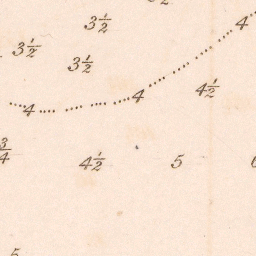 3½
4
3½
3½
4½
4
4
¾
4½
5